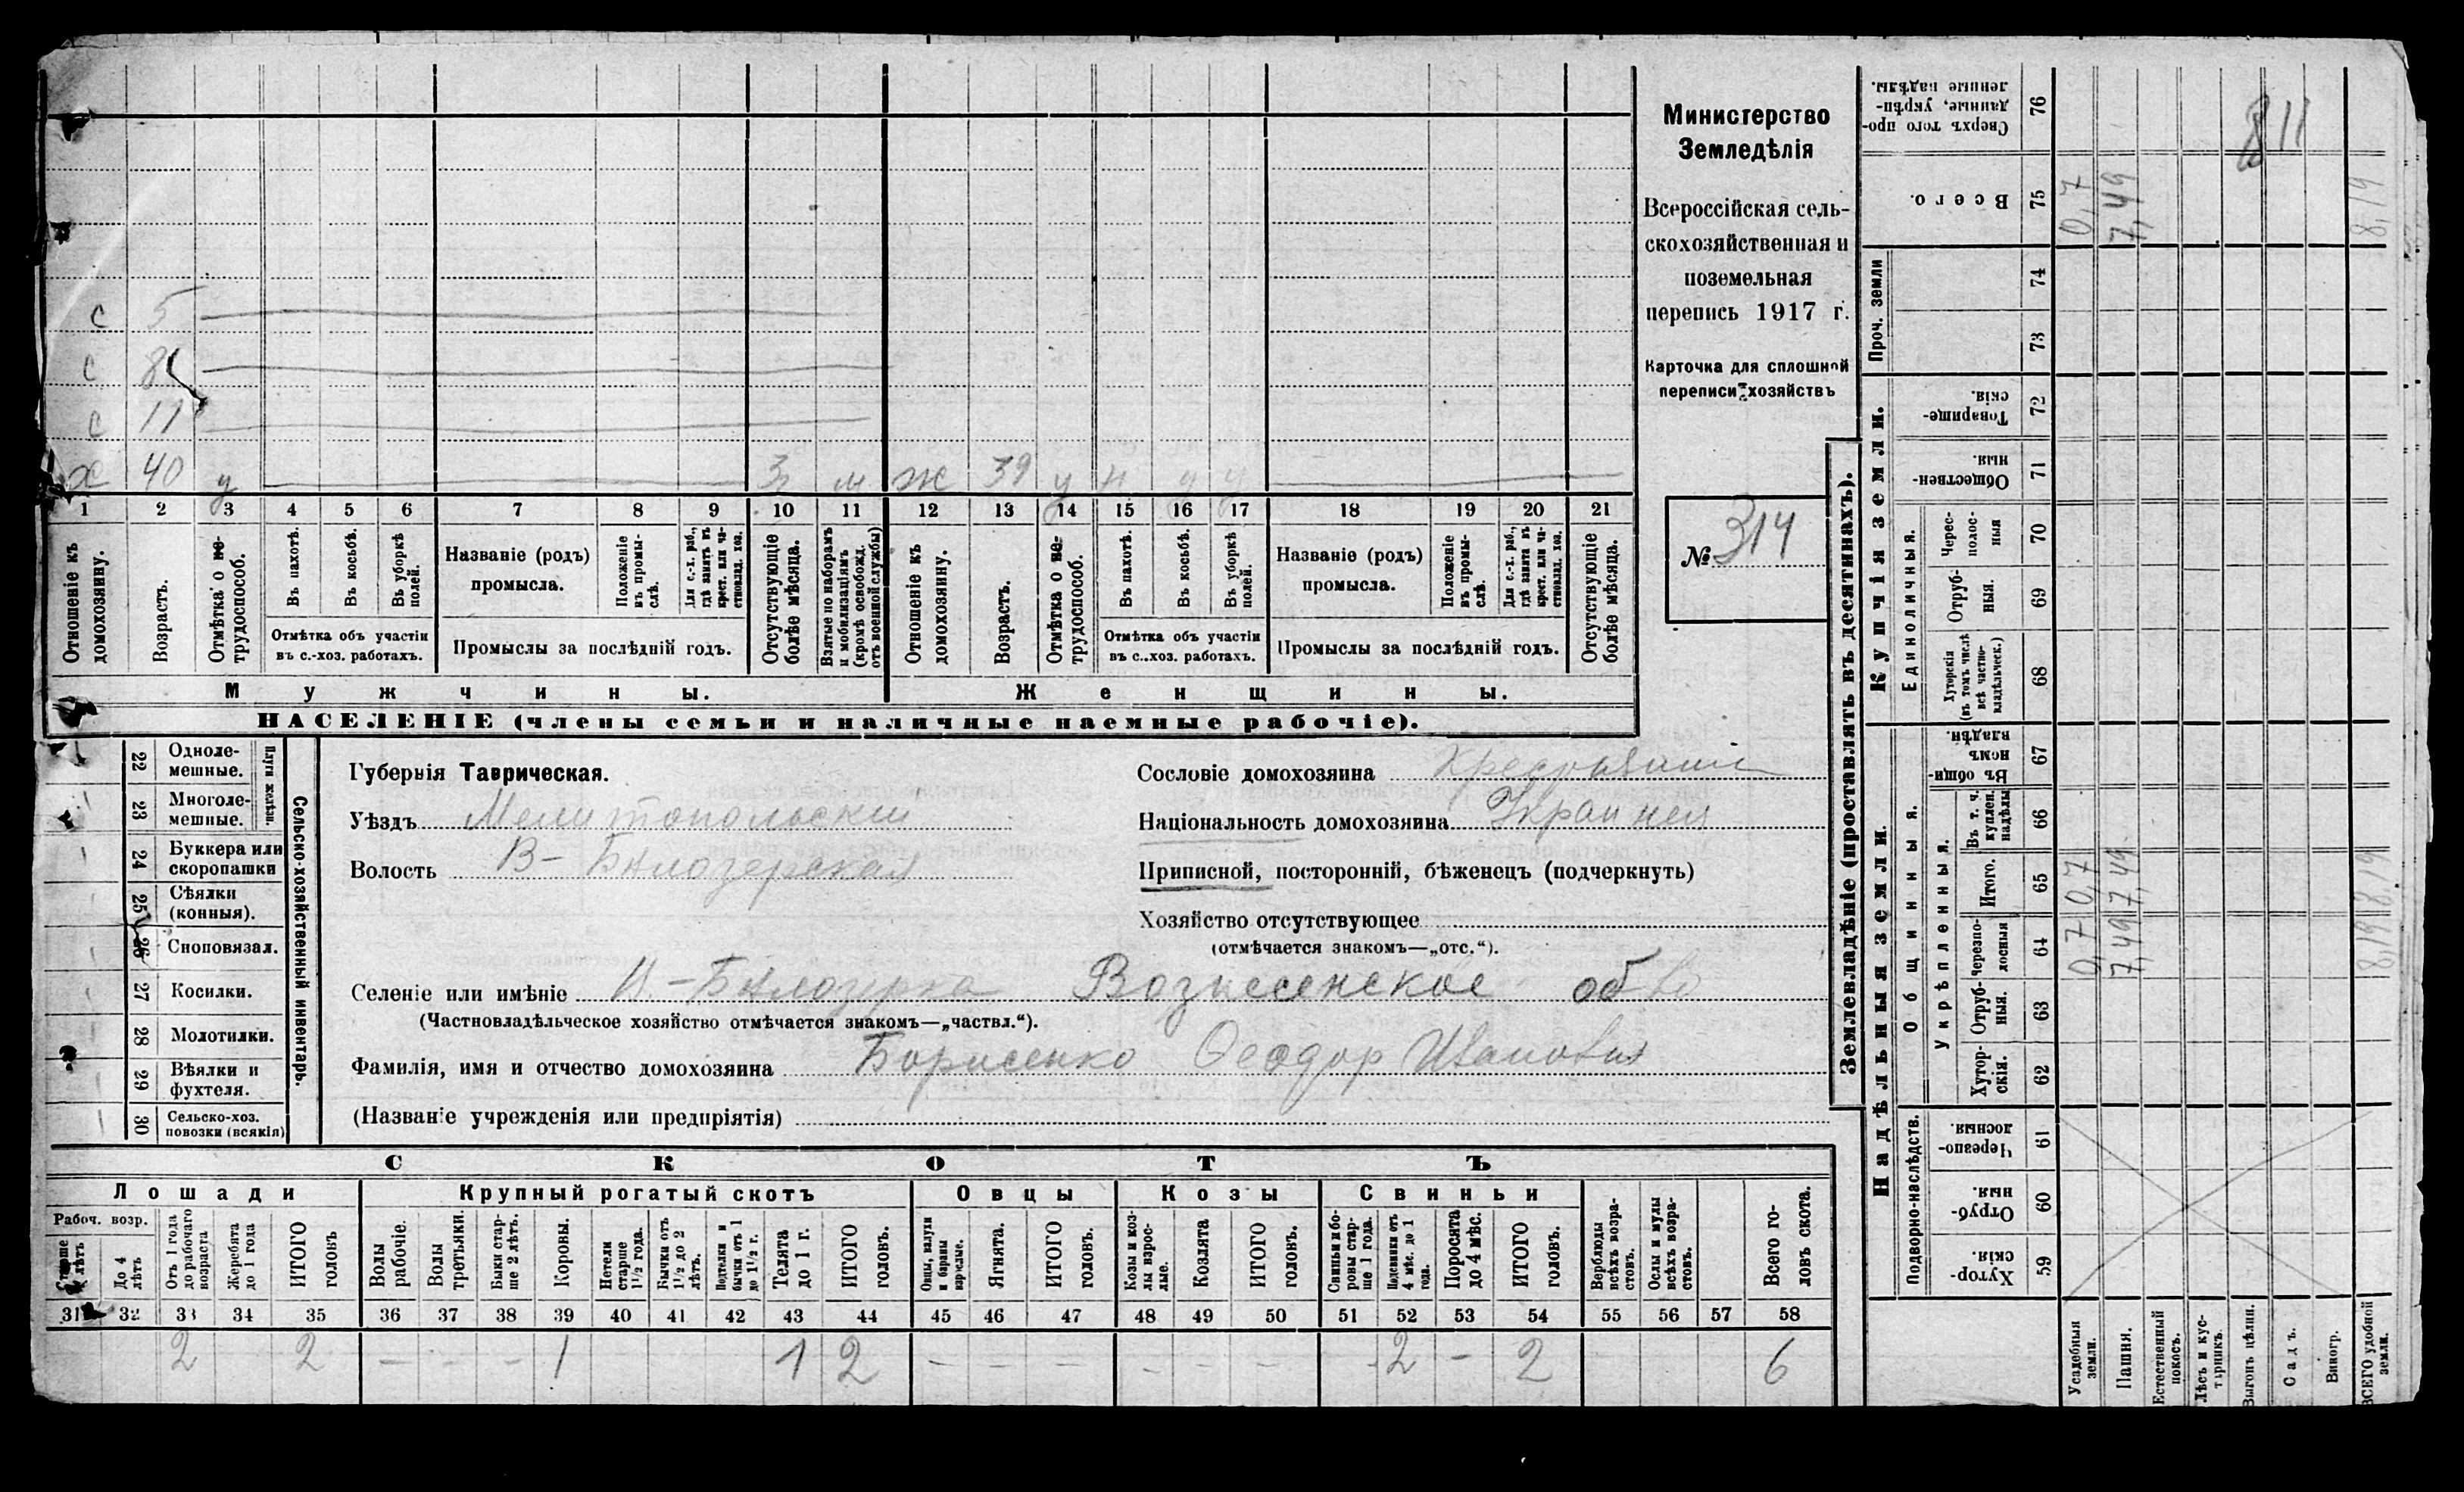 Министерство
Земледѣлія
Всероссійская сель-
скохозяйственная и
поземельная
перепись 1917 г.
Карточка для сплошной
переписи хозяйствъ
№ 314
с 5
с 8
с 11
х 40 у 3 м ж 39 у н у у
1 2 3 4 5 6 7 8 9 10 11 12 13 14 15 16 17 18 19 20 21
Отношеніе къ домохозяину.
Возрастъ.
Отмѣтка о не-трудоспособ.
Въ пахотѣ.
Въ косьбѣ.
Въ уборкѣ полей.
Отмѣтка объ участіи
въ с.-хоз. работахъ.
Названіе (родъ)
промысла.
Положеніе въ промы-слѣ.
Для с.-х. раб., гдѣ занятъ въ крест. или ча-стновлад. хоз.
Промыслы за послѣдній годъ.
Отсутствующіе болѣе мѣсяца.
Взятые по наборамъ и мобилизаціямъ (кромѣ освобожд. отъ военной службы)
Отношеніе къ домохозяину.
Возрастъ.
Отмѣтка о не-трудоспособ.
Въ пахотѣ.
Въ косьбѣ.
Въ уборкѣ полей.
Отмѣтка объ участіи
въ с..хоз. работахъ.
Названіе (родъ)
промысла.
Положеніе въ промы-слѣ.
Для с.-х. раб., гдѣ занята въ крест. или ча-стновлад. хоз.
Промыслы за послѣдній годъ.
Отсутствующіе болѣе мѣсяца.
Мужчины.
Женщины.
НАСЕЛЕНІЕ (члены семьи и наличные наемные рабочіе).
22 Одноле-мешные.
23 Многоле-мешные.
Плуги желѣзн.
24 Буккера или скоропашки
25 Сѣялки (конныя).
26 Сноповязал.
27 Косилки.
28 Молотилки.
29 Вѣялки и фухтеля.
30 Сельско-хоз. повозки (всякія)
Сельско-хозяйственный инвентарь.
Губернія Таврическая.
Уѣздъ Мелитопольскій
Волость В-Бѣлозерская
Сословіе домохозяина
Національность домохозяина
Приписной, посторонній, бѣженецъ (подчеркнуть)
Хозяйство отсутствующее
(отмѣчается знакомъ—„отс.“).
Селеніе или имѣніе В.-Бѣлозерка Вознесенское об-во
(Частновладѣльческое хозяйство отмѣчается знакомъ—„частвл.“).
Фамилія, имя и отчество домохозяина Борисенко Ѳеодор Иванович
(Названіе учрежденія или предпріятія)
СКОТЪ
Лошади
Крупный рогатый скотъ
Овцы
Козы
Свиньи
Рабоч. возр.
Старше 4 лѣтъ
До 4 лѣтъ
Отъ 1 года до рабочаго возраста
Жеребята до 1 года
ИТОГО головъ
Волы рабочіе.
Волы третьяки.
Быки стар-ше 2 лѣтъ.
Коровы.
Нетели старше 1½ года.
Бычки отъ 1½ до 2 лѣтъ.
Подтелки и бычки отъ 1 до 1½ г.
Телята до 1 г.
ИТОГО головъ.
Овцы, валухи и бараны взрослые.
Ягнята.
ИТОГО головъ.
Козы и коз-лы взрос-лые.
Козлята
ИТОГО головъ.
Свиньи и бо-ровы стар-ше 1 года.
Подсвинки отъ 4 мѣс. до 1 года.
Поросята до 4 мѣс.
ИТОГО головъ.
Верблюды всѣхъ возра-стовъ.
Ослы и мулы всѣхъ возра-стовъ.
Всего го-ловъ скота.
31 32 33 34 35 36 37 38 39 40 41 42 43 44 45 46 47 48 49 50 51 52 53 54 55 56 57 58
2 2 — - - 1 1 2 — — — - - - 2 - 2 6
Землевладѣніе (проставлять въ десятинахъ).
Надѣльныя земли.
Купчія земли.
Проч. земли
Подворно-наслѣдств.
Общинныя.
Укрѣпленныя.
Единоличныя.
Сверхъ того про-данные, укрѣп-ленные надѣлы. 76
Всего. 75 0,7 7,49 8,19
811
74
73
Товарище-скія. 72
Обществен-ныя. 71
Черес-полос-ныя 70
Отруб-ныя. 69
Хуторскія (въ томъ числѣ всѣ частно-владѣльческ.) 68
Въ общи-номъ владѣн. 67
Въ т. ч. куплен. надѣлы 66
Итого. 65 0,7 7,49 8,19
Черезпо-лосныя 64 0,7 7,49 8,19
Отруб-ныя. 63
Хутор-скія. 62
Черезпо-лосныя. 61
Отруб-ныя. 60
Хутор-скія. 59
Усадебныя земли.
Пашня.
Естественный покосъ.
Лѣсъ и кус-тарникъ.
Выгонъ цѣлин.
Садъ.
Виногр.
ВСЕГО удобной земли.